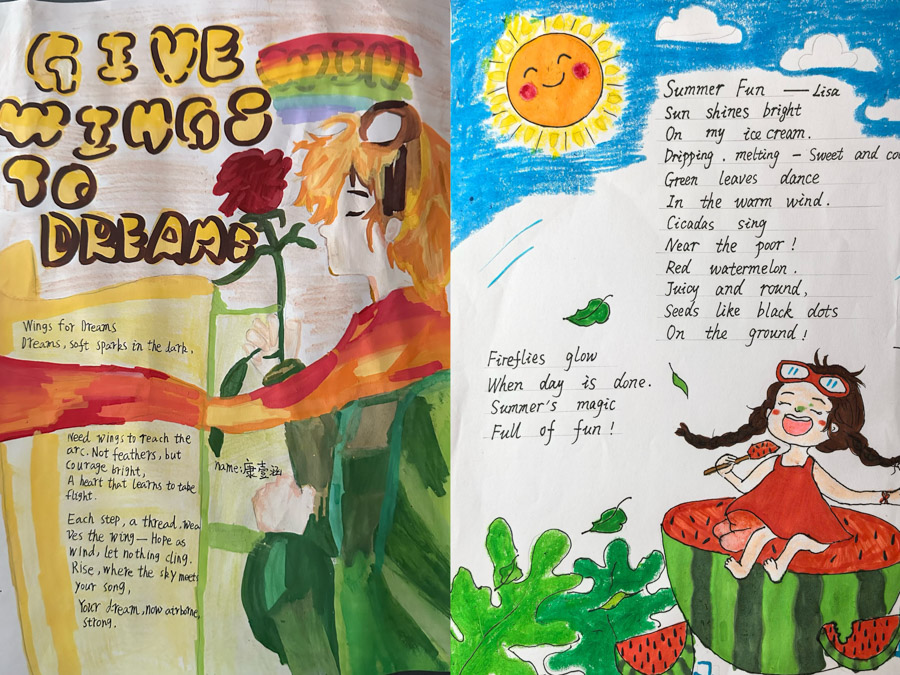 GIVE
WINGS
TO
DREAMS
Wings for Dreams
Dreams, soft sparks in the dark,
Need wings to reach the
arc. Not feathers, but
Courage bright,
A heart that learns to take
flight.
Each step, a thread, wea
ves the wing — Hope as
wind, let nothing cling.
Rise, where the sky meets
your song,
Your dream, now airborne,
strong.
name:康壹涵
Summer Fun —— Lisa
Sun shines bright
On my ice cream.
Dripping . melting – Sweet and
Green leaves dance
In the warm wind.
Cicadas sing
Near the poor !
Red watermelon.
Juicy and round,
Seeds like black dots
On the ground !
Fireflies glow
When day is done.
Summer's magic
Full of fun !